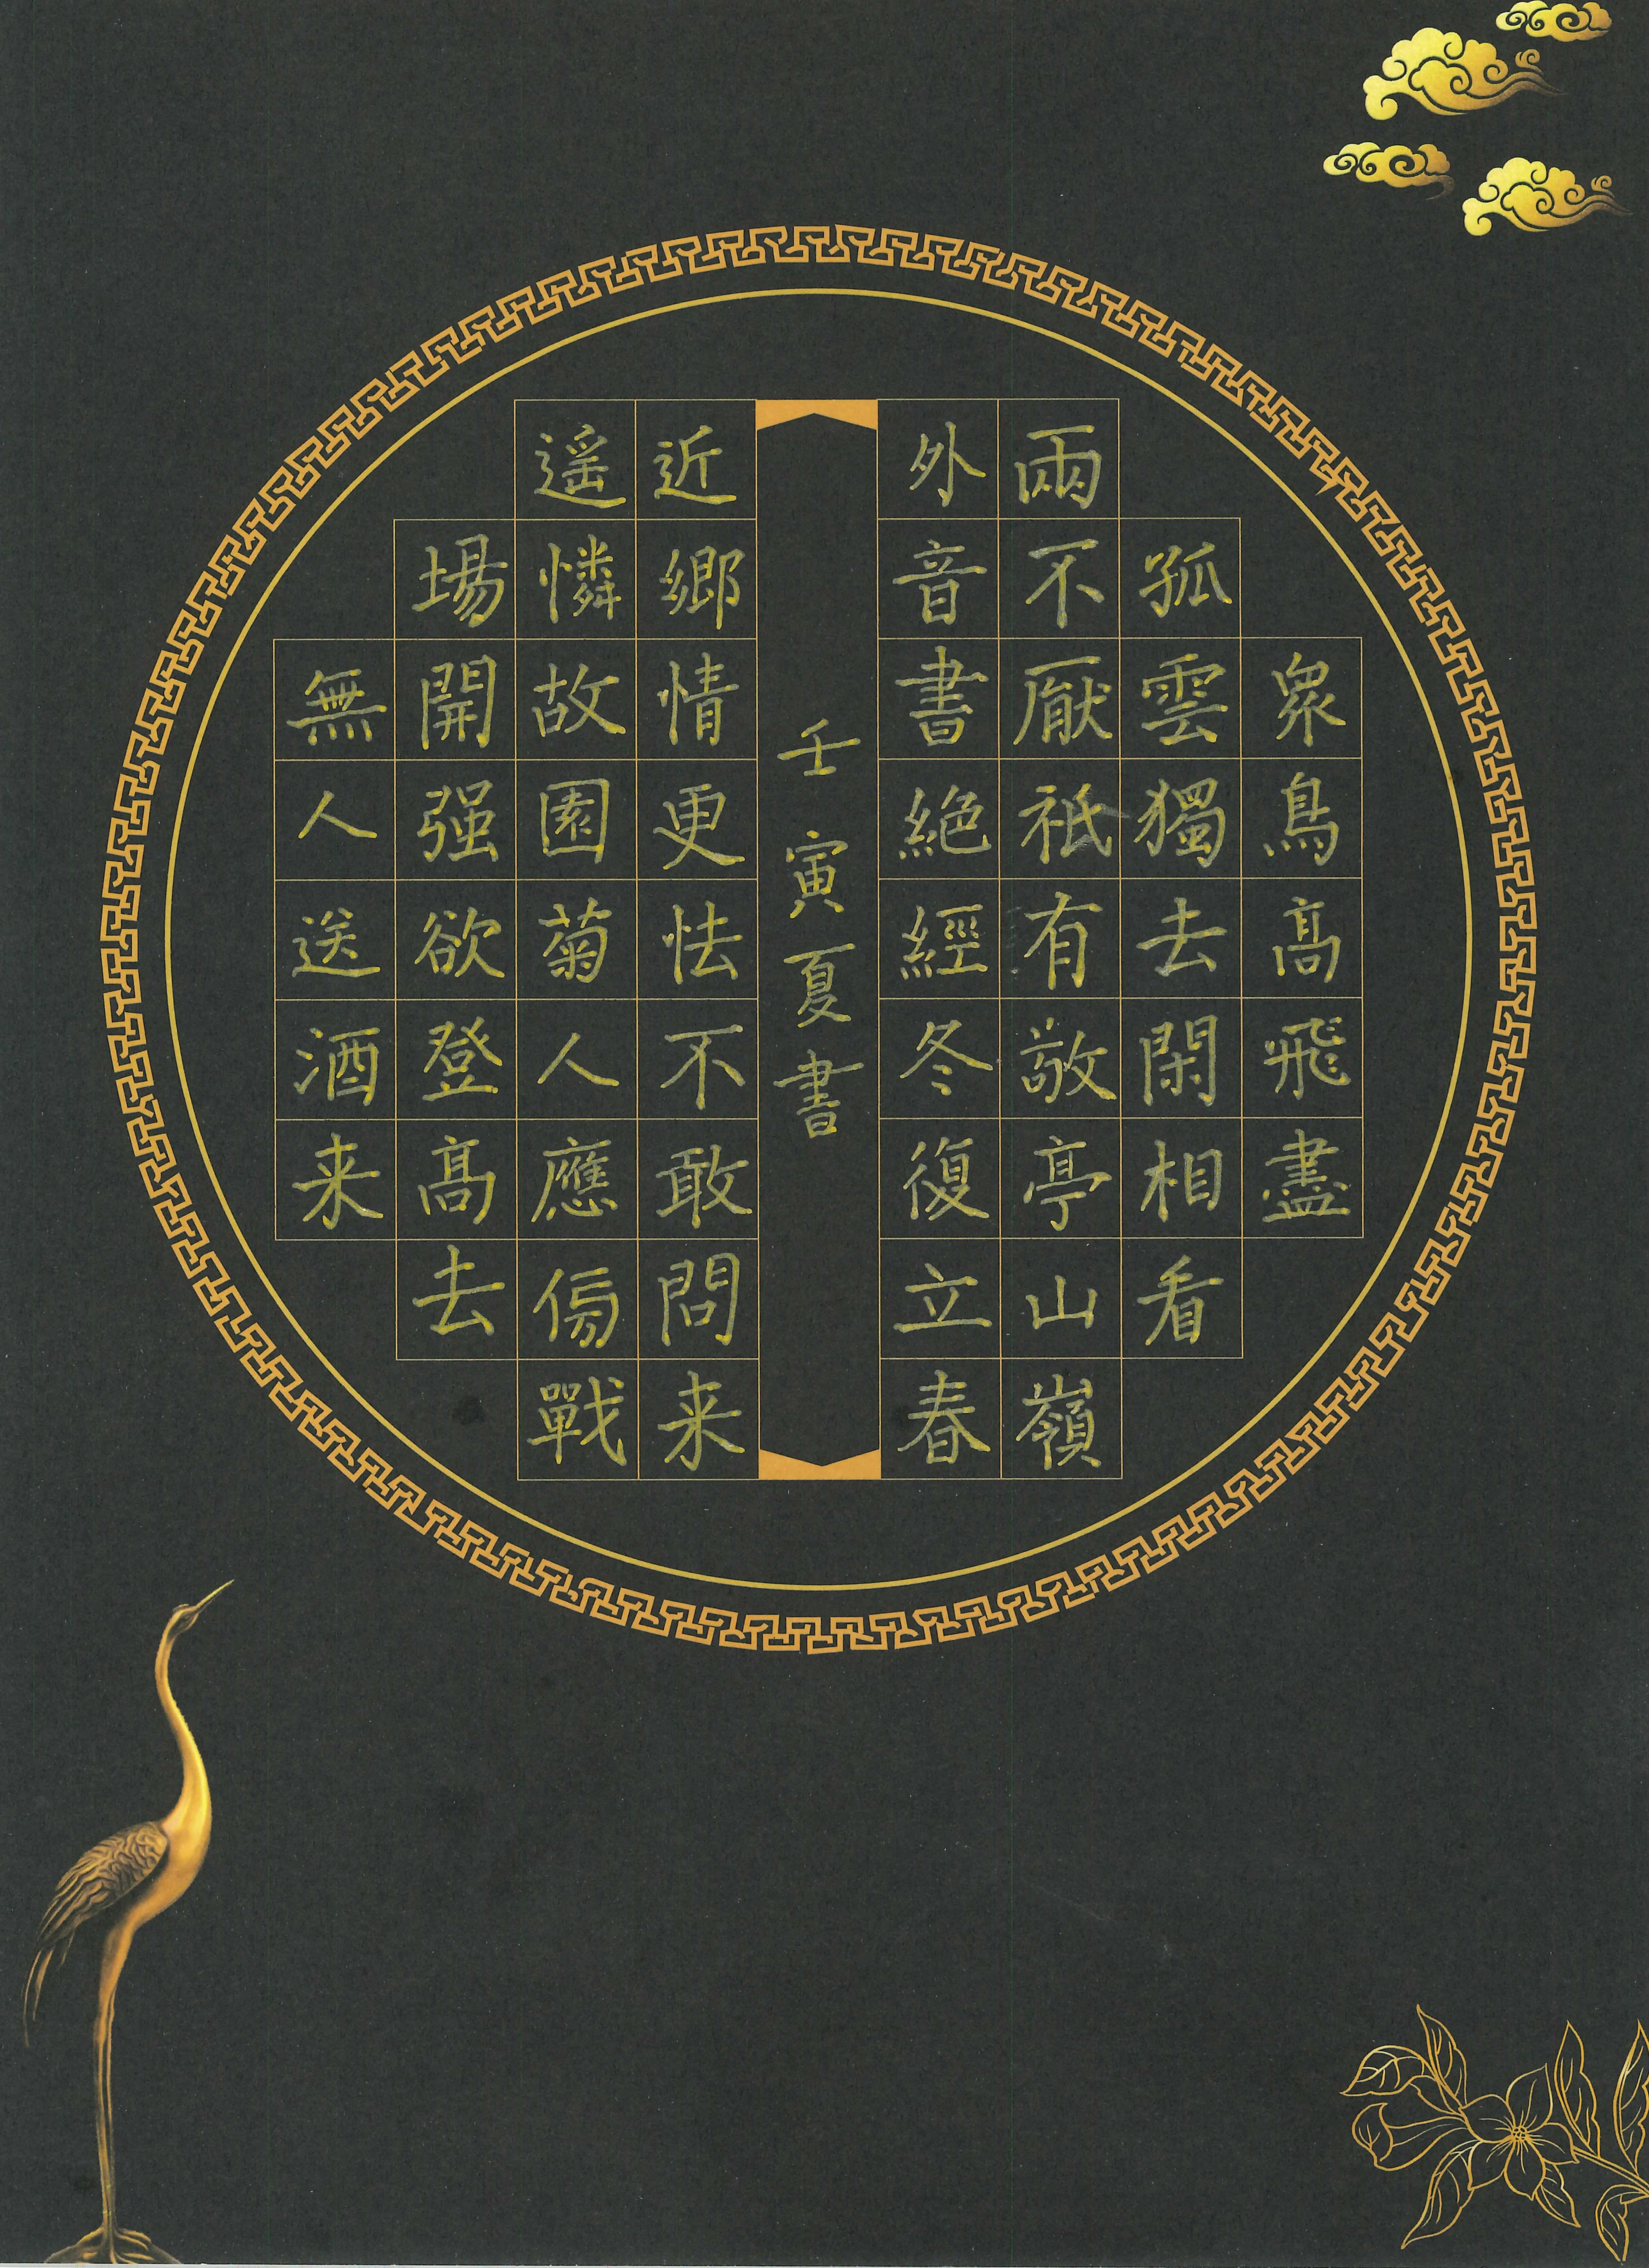 衆鳥髙飛盡
孤雲獨去閑相看
兩不厭祇有敬亭山嶺
外音書絕經冬復立春
壬寅夏書
近鄉情更怯不敢問来
遥憐故園菊人應傍戰
場開强欲登髙去
無人送酒来